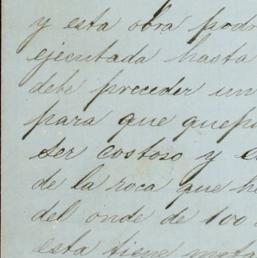 y esta obra podr
ejecutada hasta
debe preceder un
para que quepa
ser costoso y e
de la roca que h
del onde de 100
esta tiene